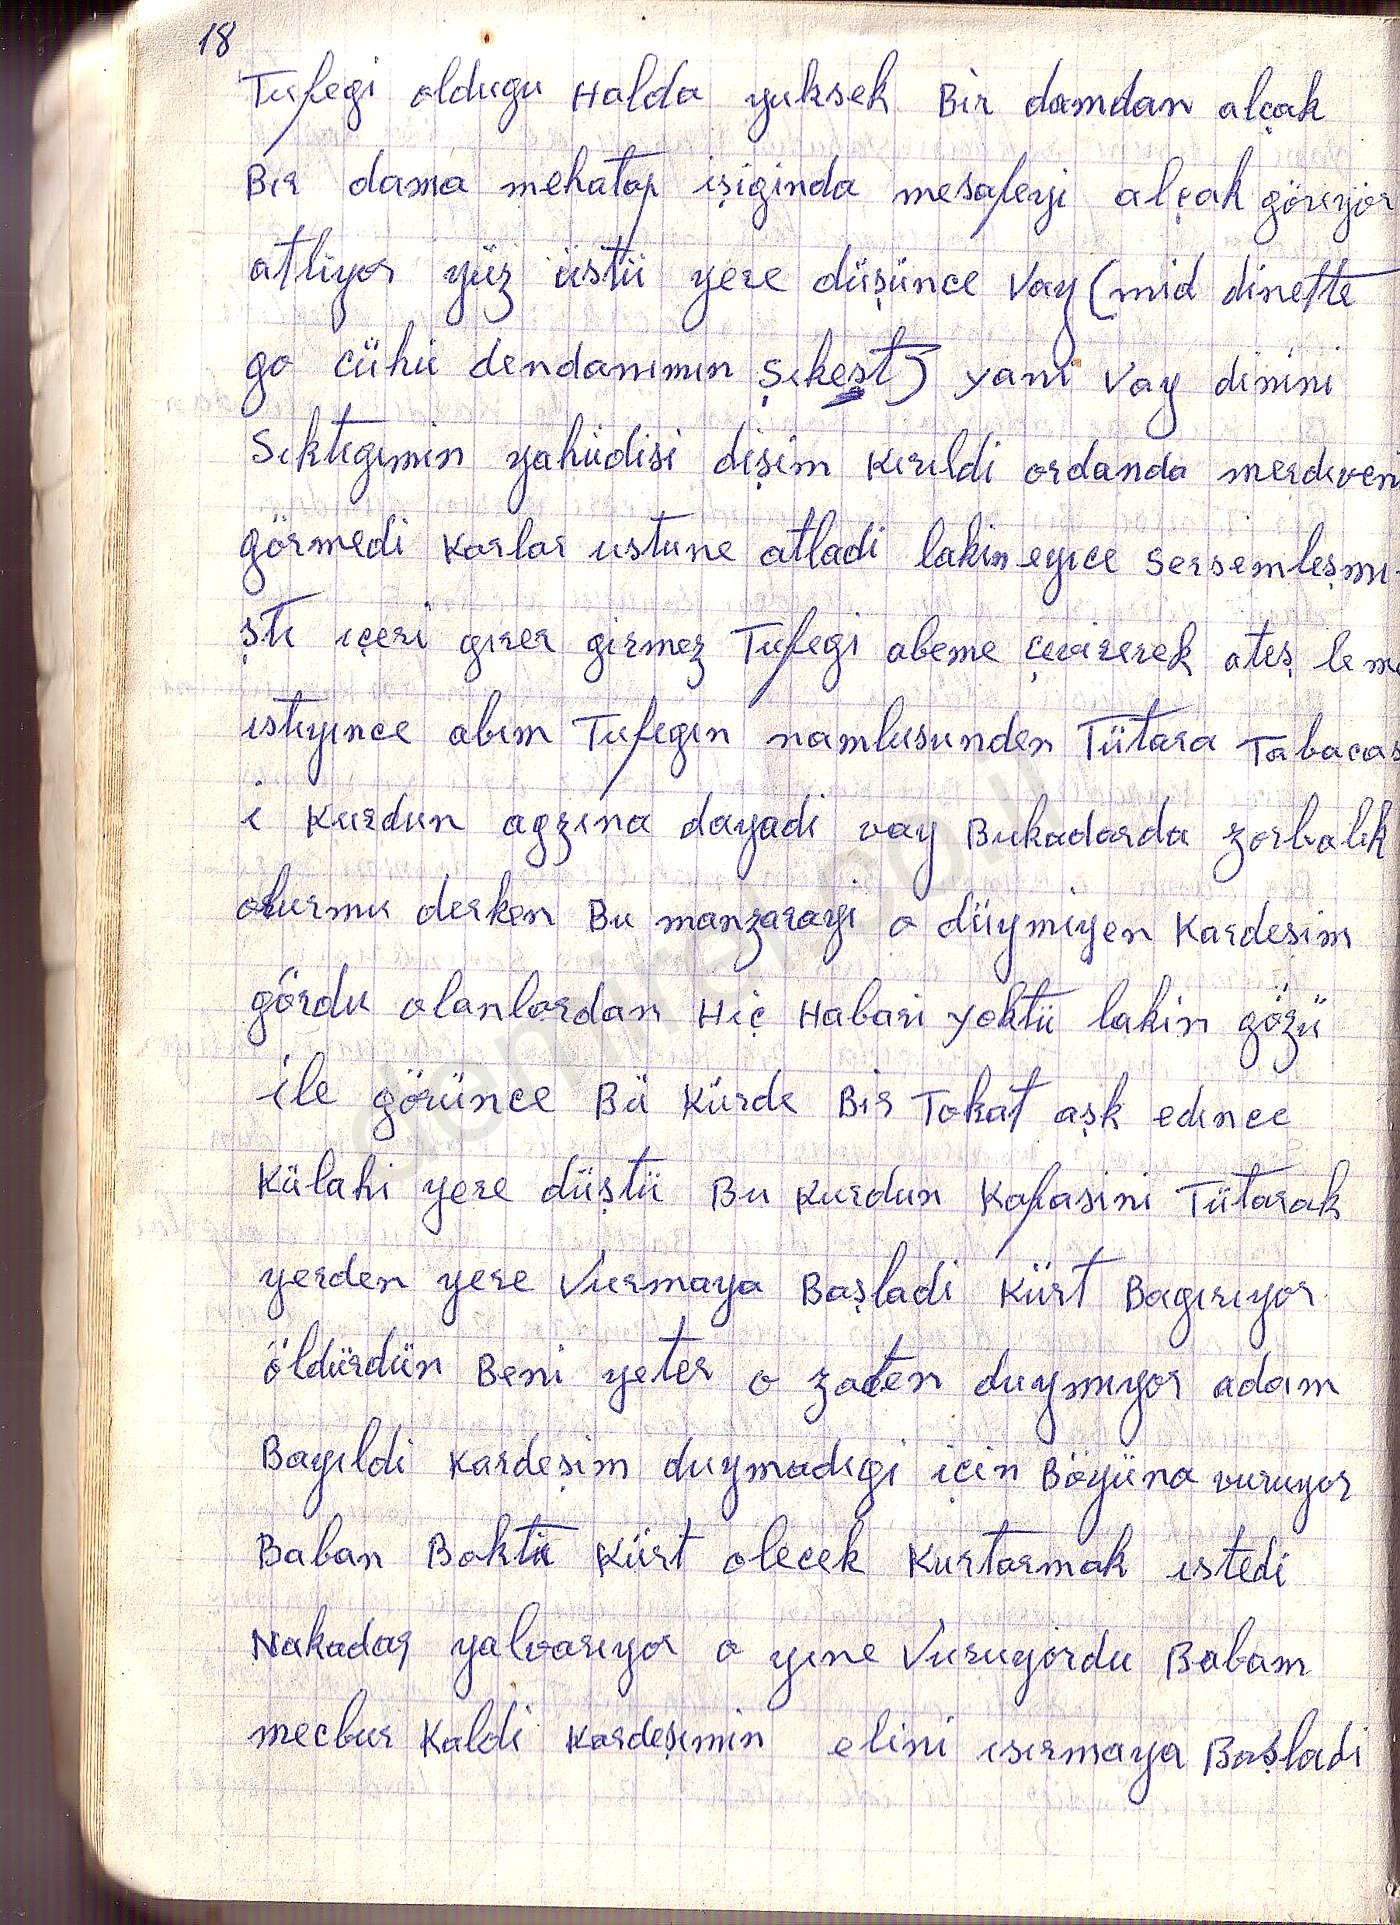 18
Tufegi oldugu Halda yuksek Bir damdan alçak
Bir dama mehatap işiginda mesafeyi alçak görıyor
atliyor yüz üstü yere düşünce Vay (mid dinette
go cühü dendanımın Şıkeşt) yani Vay dinini
Sıktıgımin yahüdisi dişim kırıldi ordanda merdıveni
görmedi karlar ustune atladi lakin eyıce sersemleşmı-
ştı ıçeri gırer girmez Tufegi abeme çevirerek ateş leme
ıstıyınce abım Tufegın namlusunden Tütara Tabacas
i kurdun agzına dayadi vay Bukadarda zorbalık
olurmu derken Bu manzarayi o düymıyen kardeşim
gördu olanlardan Hiç Habari yoktü lakin gözü
ile görünce Bü kürde Bir Tokat aşk edınce
külahi yere düştü Bu kurdun kafasini Tütarak
yerden yere Vurmaya Başladi kürt Bagırıyor
öldürdün Beni yeter o zaten duymıyor adam
Bayıldi kardeşim duymadıgi için Böyüna vuruyor
Baban Baktü kürt olecek kurtarmak ıstedi
Nakadar yalvarıyor o yıne Vuruyordu Babam
mecbur kaldi kardeşımin elini ısırmaya Başladi
demirel.co.il